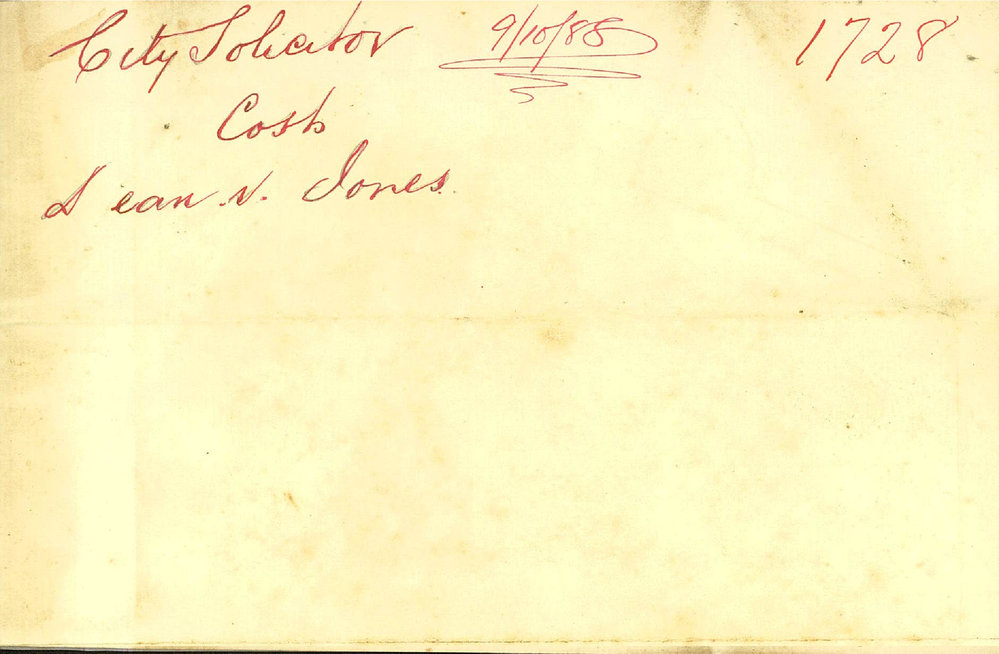 City Solicitor 9/10/88 1728
Costs
Dean v. Jones.